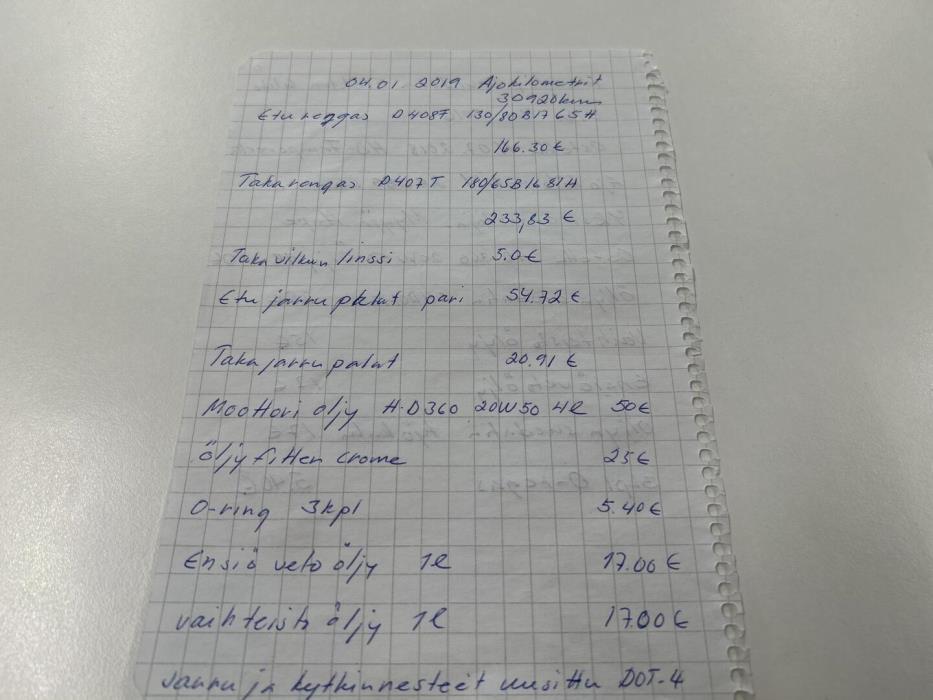 04.01 2019 Ajokilometrit
30920km
Eturengas D408F 130/80B17 65H
166.30 €
Takarengas D407T 180/65B16 81H
233,83 €
Takavilkun linssi 5.0€
Etu jarru palat pari 54.72 €
Takajarrupalat 20.91 €
Moottori öljy H-D360 20W50 4l 50€
Öljy filtteri crome 25€
O-ring 3kpl 5.40€
Ensiö veto öljy 1l 17.00€
vaihteisto öljy 1l 17.00€
Jarru ja kytkinnesteet uusittu DOT-4